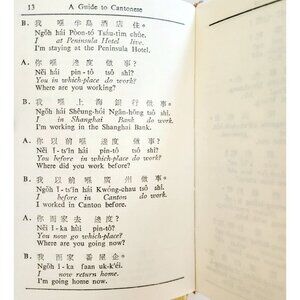 13 A Guide to Cantonese
B. 我 嘅 半島 酒店 住。
Ngŏh hái Pòon-tó Tsáu-tìm chŭe.
I at Peninsula Hotel live.
I'm staying at the Peninsula Hotel.
A. 你 邊度 做事?
Nĕi hái pin-tŏ tsŏ shĭ?
You in which-place do work?
Where are you working?
B. 我 上海 銀行 做事。
Ngŏh hái Shĕung-hói Ngān-hōng tsŏ shĭ.
I in Shanghai Bank do work.
I'm working in the Shanghai Bank.
A. 你 以前 邊度 做事?
Nĕi ĭ-ts'īn hái pin-tŏ tsŏ shĭ?
You before in which-place do work?
Where did you work before?
B. 我 以前 廣州 做事。
Ngŏh ĭ-ts'īn hái Kwóng-chau tsŏ shĭ.
I before in Canton do work.
I worked in Canton before.
A. 你 而家 去 邊度?
Nĕi ī-ka hùi pin-tŏ?
You now go which-place?
Where are you going now?
B. 我 而家 番屋企。
Ngŏh ī-ka faan uk-k'éi.
I now return home.
I'm going home now.